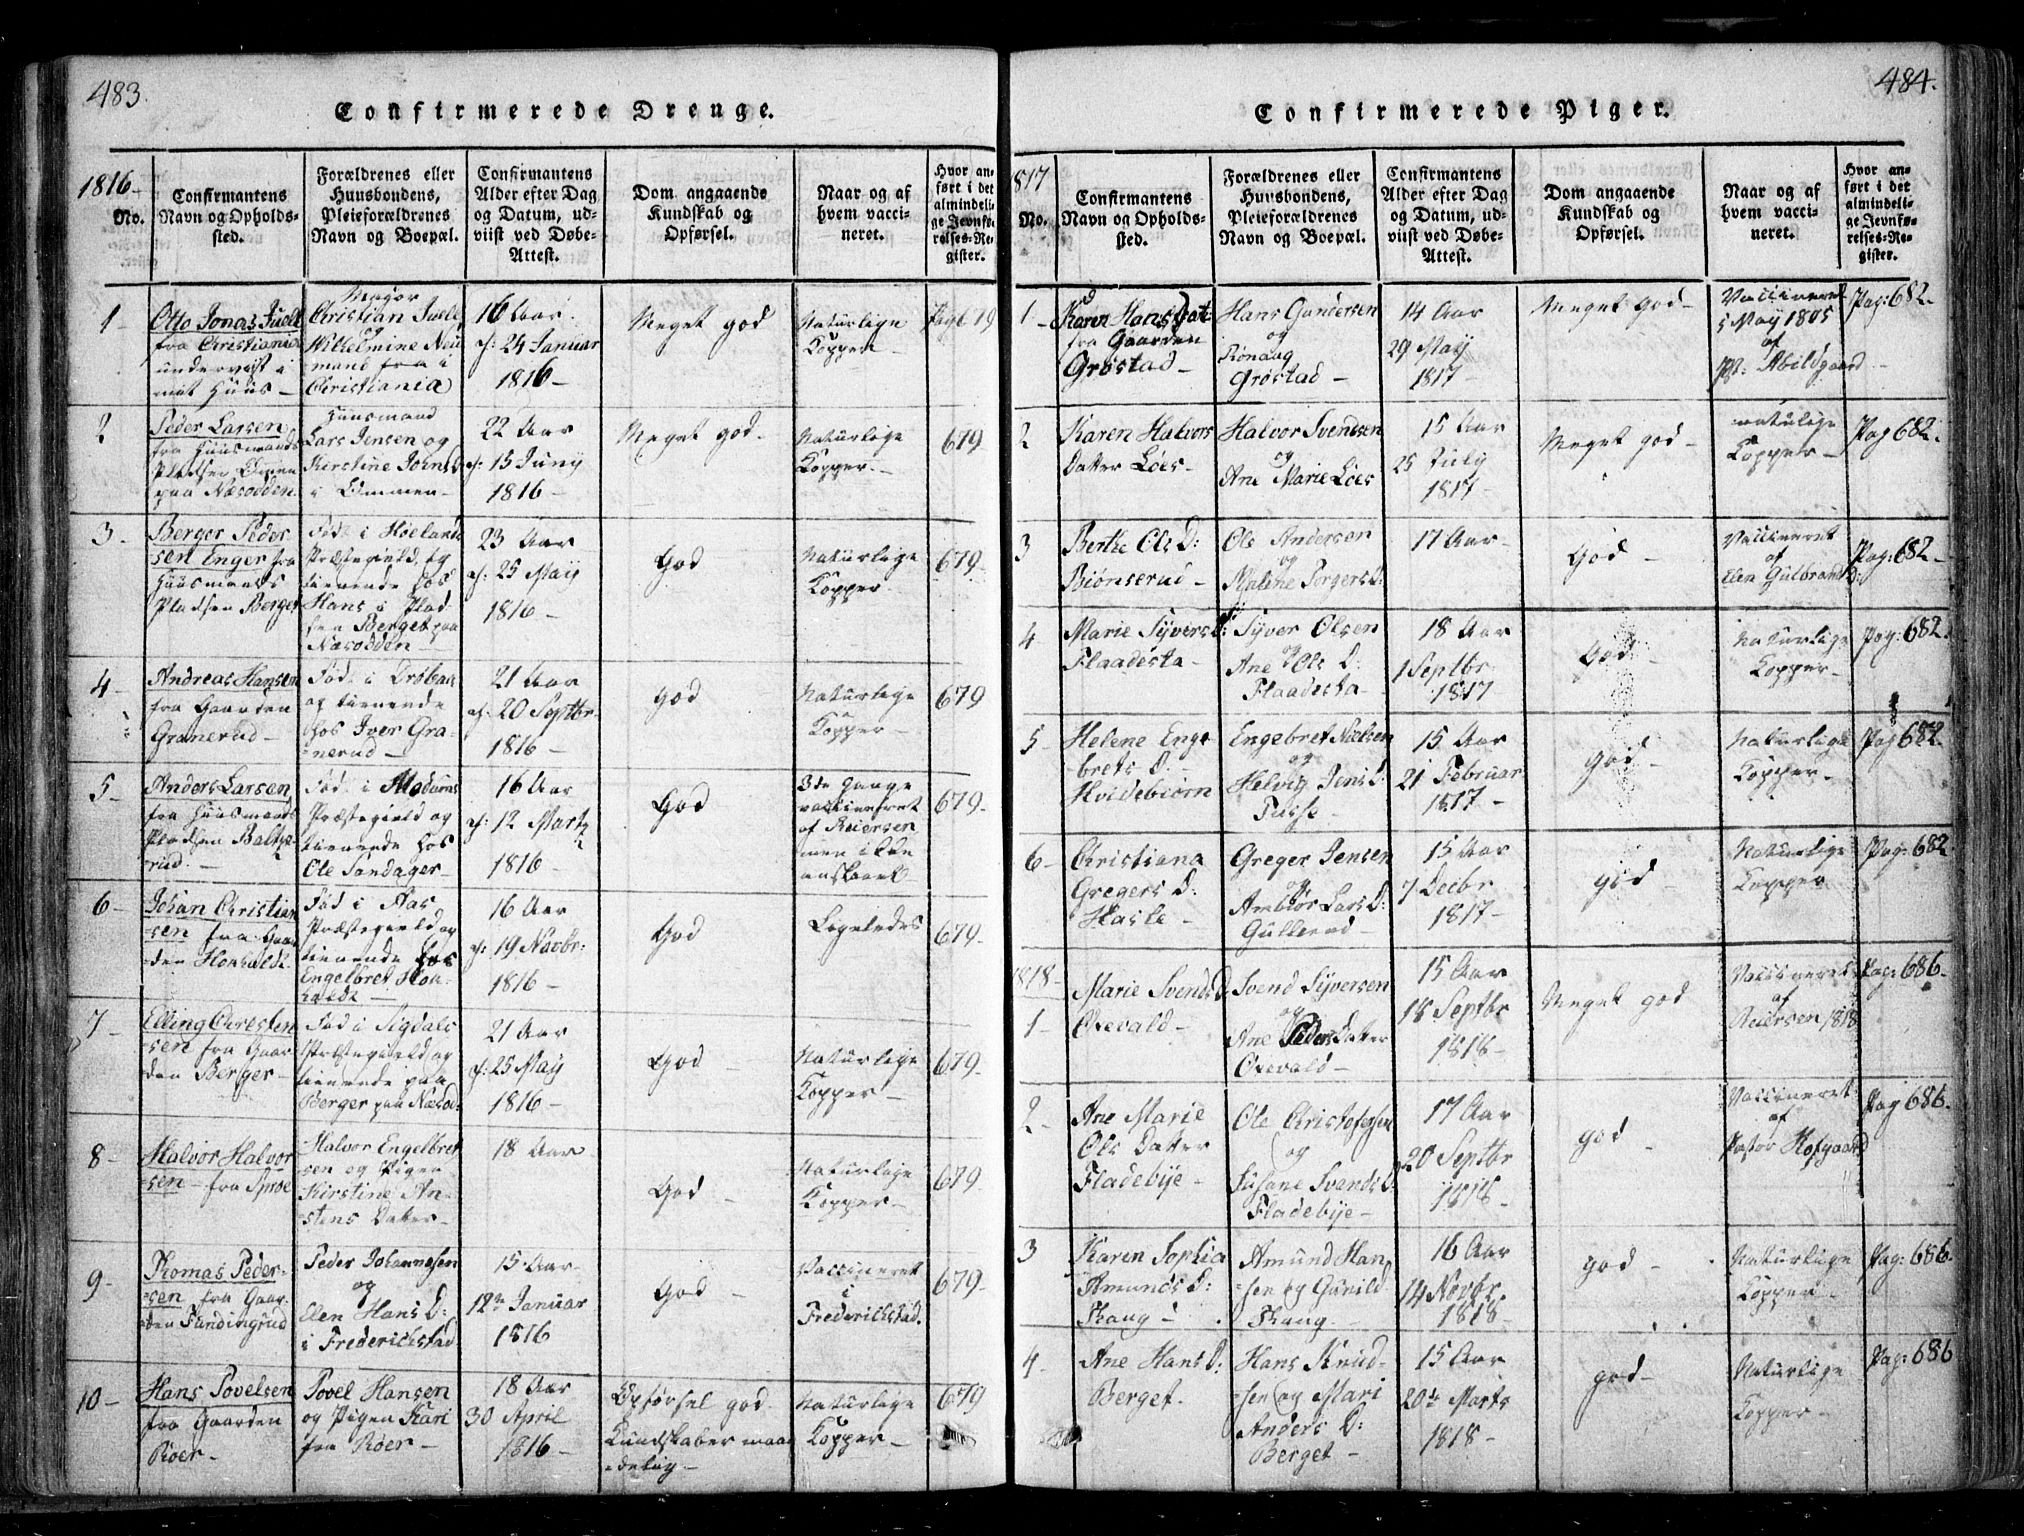 483.
Confirmerede Drenge.
1816
No.
Confirmantens
Navn og Opholds-
sted.
Forældrenes eller
Huusbondens,
Pleieforældrenes
Navn og Boepæl.
Confirmantens
Alder efter Dag
og Datum, ud-
viist ved Døbe-
Attest.
Dom angaaende
Kundskab og
Opførsel.
Naar og af
hvem vacci-
neret.
Hvor an-
ført i det
almindeli-
ge Jevnfø-
relses-Re-
gister.
1
Otto Jonas Juell
fra Christiania
underviist i
mit Huus
Major
Christian Juell
og
Wilhelmine Neu
mand fra i
Christiania
16 Aar.
24 Januar
1816
Meget god
Naturlige
Kopper
Pag 679
2
Peder Larsen
fra Huusmands
Pladsen Ommen
paa Næsodden
Huusmand
Lars Jensen og
Kirstine Johns
i Ommen
22 Aar
15 Juny
1816
Meget god.
Naturlige
Kopper.
679
3
Berger Peder
sen Enger fra
Huusmands
Pladsen Berget
Født i Høeland
Præstegield, og
tienende hos
Hans i Plad
sen Berget paa
Næsodden
23 Aar
25 May
1816
God
Naturlige
Kopper
679
4
Andreas Hansen
fra Gaarden
Granerud
Født i Drøbak
og tienende
hos Iver Gra-
nerud
21 Aar
20 Septbr
1816
God
Naturlige
Kopper
679
5
Anders Larsen
fra Huusmands
Pladsen Baltze-
rud.
Født i Modums
Præstegield og
tienende hos
Ole Sandager
16 Aar
12 Martz
1816
God
3de Gange
vaccineret
af Reiersen
men ikke
anslaaet
679
6
Johan Christian
sen fra Gaar
den
Fød i Aas
Præstegield og
tienende hos
Engelbret
16 Aar
19 Novbr.
1816
God
Ligeledes
679
7
Elling Christen
sen fra Gaar
den Berger
Fød i Sigdals
Præstegield og
tienende paa
Berger paa Næsod
21 Aar
25 May
1816
God
Naturlige
Kopper
679
8
Halvor Halvor
sen fra Sprøe
Halvor Engelbret
sen og Pigen
Kirstine An-
stens Datter
18 Aar
God
Naturlige
Kopper
679
9
Thomas Peder-
sen fra Gaar
den Fundingrud
Peder Johannesen
og
Elen Hans D:
i Frederichstad
15 Aar
12te Januar
1816
God
Vaccineret
i
Frederichstad.
679
10
Hans Povelsen
fra Gaarden
Roer
Povel Hansen
og Pigen Kari
fra Roer
18 Aar
30 April
1816
Opførsel god
Kundskaber maa-
delig
Naturlige
Kopper
679
484.
Confirmerede Piger.
1817
No.
Confirmantens
Navn og Opholds-
sted.
Forældrenes eller
Huusbondens,
Pleieforældrenes
Navn og Boepæl.
Confirmantens
Alder efter Dag
og Datum, ud-
viist ved Døbe-
Attest.
Dom angaaende
Kundskab og
Opførsel.
Naar og af
hvem vacci-
neret.
Hvor an-
ført i det
almindeli-
ge Jevnfø-
relses-Re-
gister.
1
Karen Hans
fra Gaarden
Grøstad
Hans Gundersen
og
Rønaug
Grøstad
14 Aar
29 May
1817
Meget god
Vaccineret
5 May 1805
af
Abildgaard
Pag: 682
2
Karen Halvors
Datter Løes
Halvor Svendsen
og
Ane Marie Løes
15 Aar
25 July
1817
Meget god
naturlige
Kopper
Pag 682.
3
Berthe Ols D:
Biønserud
Ole Andersen
og
Malene Torgers D:
17 Aar
God
Vaccineret
af
Elen Gulbrands D:
Pag: 682
4
Marie Syvers D:
Flaadesta
Syver Olsen
og
Ane Ols D:
Flaadesta
18 Aar
1 Septbr
1817
God
Naturlige
Kopper
Pag: 682
5
Helene Enge
brets D:
Hvidebiørn
Engebret Nielsen
og
Helvig Jens D:
Tusse
15 Aar
21 Februar
1817
god
Naturlige
Kopper
Pag 682
6
Christiana
Gregers D:
Hasle
Greger Jensen
og
Ambiør Lars D:
Gullerud
15 Aar
7 Decbr
1817
god
Naturlige
Kopper
Pag: 682
1818
1
Marie Svends D
Oxevald
Svend Syversen
og
Ane Peders Datter
Oxevald
15 Aar
18 Septbr
1818
Meget god
Vaccineret
af
Reiersen 1818
Pag: 686
2
Ane Marie
Ols Datter
Fladebye
Ole Christofersen
og
Susane Svends D:
Fladebye
17 Aar
20 Septbr
1818
god
Vaccineret
af
Pastor Hofgaard
Pag 686.
3
Karen Sophia
Amunds D:
Skaug
Amund Han
sen og Gunild
Skaug
16 Aar
14 Novbr.
1818
god
Naturlige
Kopper
Pag: 686
4
Ane Hans D:
Berget.
Hans Knud-
sen og Mari
Anders D:
Berget
15 Aar
20de Marts
1818
god
Naturlige
Kopper
Pag: 686